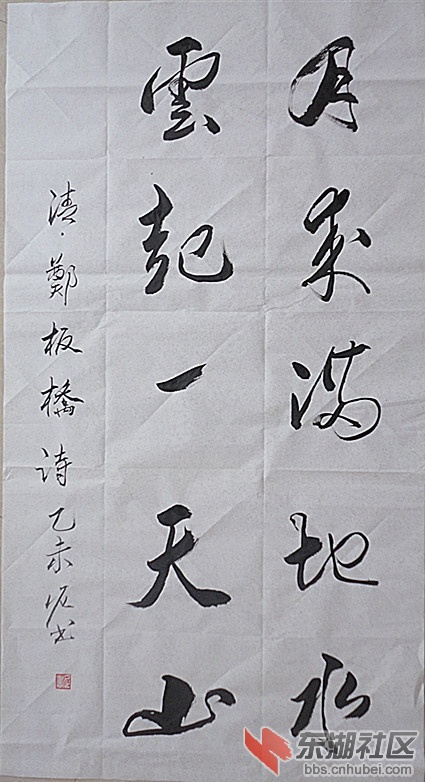 月来满地水
雲起一天山
清·鄭板橋诗 乙未 书
东湖社区
bbs.cnhubei.com